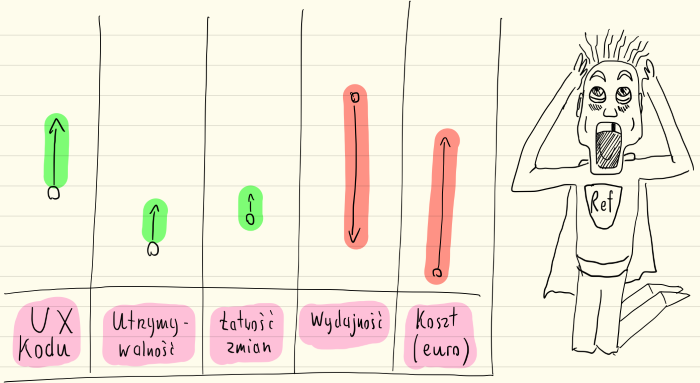 Ref
UX
Kodu
Utrzymy-
walność
Łatwość
zmian
Wydajność
Koszt
(euro)